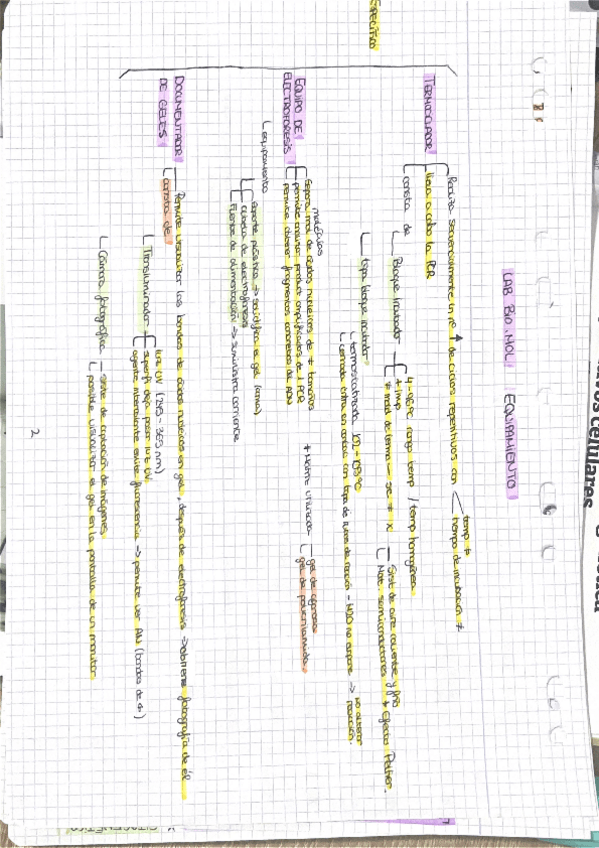 LAB BIO.MOL: EQUIPAMIENTO
ESPECÍFICO
TERMOCICLADOR
Realiza secuencialmente un nº ↑ de ciclos repetitivos con
temp ≠
tiempo de incubación ≠
lleva a cabo la PCR
consta de
Bloque incubador
4-96ºC rango temp / temp homogénea
+ imp
≠ mod de termo - se ≠ x
Sist de aire caliente y frío
Mat. semiconductores + Efecto Peltier.
tapa bloque incubador
termostatizada 102-103ºC
cerrada entra en contacto con tapa de tubos de reacción - H2O no evapore → no alterar reacción.
EQUIPO DE ELECTROFORESIS
Separa mol de ácidos nucleicos de ≠ tamaños
moléculas
permite analizar product amplificados de 1 PCR
permite obtener fragmentos concretos de ADN
+ Matriz utilizada
gel de agarosa
gel de poliacrilamida
equipamiento
soporte plástico → solidifica el gel (cama)
cubeta de electroforesis
Fuente de alimentación → suministra corriente
DOCUMENTADOR DE GELES
Permite visualizar las bandas de ácidos nucleicos en gel, después de electroforesis → obtiene fotografía de él
consta de
Transiluminador
luz UV (245-365 nm)
superfi deja pasar luz UV
agente intercalante emite fluorescencia → permite ver AN (bandas de él)
Cámara fotográfica
Siste de captación de imágenes
posible visualizar el gel en la pantalla de un monitor
2